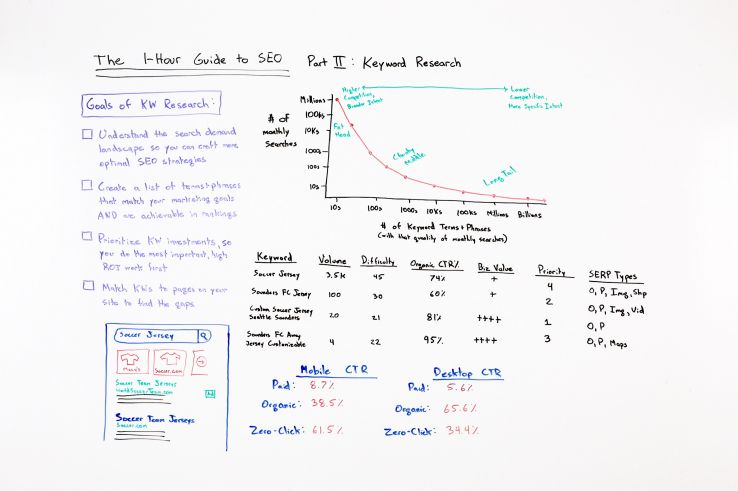 The 1-Hour Guide to SEO Part II: Keyword Research
Goals of KW Research:
Understand the search demand
landscape so you can craft more
optimal SEO strategies
Create a list of terms+phrases
that match your marketing goals
AND are achievable in rankings
Prioritize KW investments, so
you do the most important, high
ROI work first
Match KWs to pages on your
site to find the gaps
# of
monthly
Searches
Millions
100Ks
10Ks
1000s
100s
10s
Higher
Competition,
Broader Intent
Lower
Competition,
More Specific Intent
Fat
Head
Chunky
Middle
Long Tail
10s 100s 1000s 10Ks 100Ks Millions Billions
# of Keyword Terms + Phrases
(with that quality of monthly searches)
Keyword Volume Difficulty Organic CTR% Biz Value Priority SERP Types
Soccer Jersey 3.5K 45 74% + 4 O, P, Img, Shp
Sounders FC Jersey 100 30 60% + 2 O, P, Img, Vid
Custom Soccer Jersey
Seattle Sounders 20 21 81% ++++ 1 O, P
Sounders FC Away
Jersey Customizable 4 22 95% ++++ 3 O, P, Maps
Soccer Jersey
Macy's
Soccer.com
Soccer Team Jerseys
WorldSoccerTeam.com
Ad
Soccer Team Jerseys
Soccer.com
Mobile CTR
Paid: 8.7%
Organic: 38.5%
Zero-Click: 61.5%
Desktop CTR
Paid: 5.6%
Organic: 65.6%
Zero-Click: 34.4%